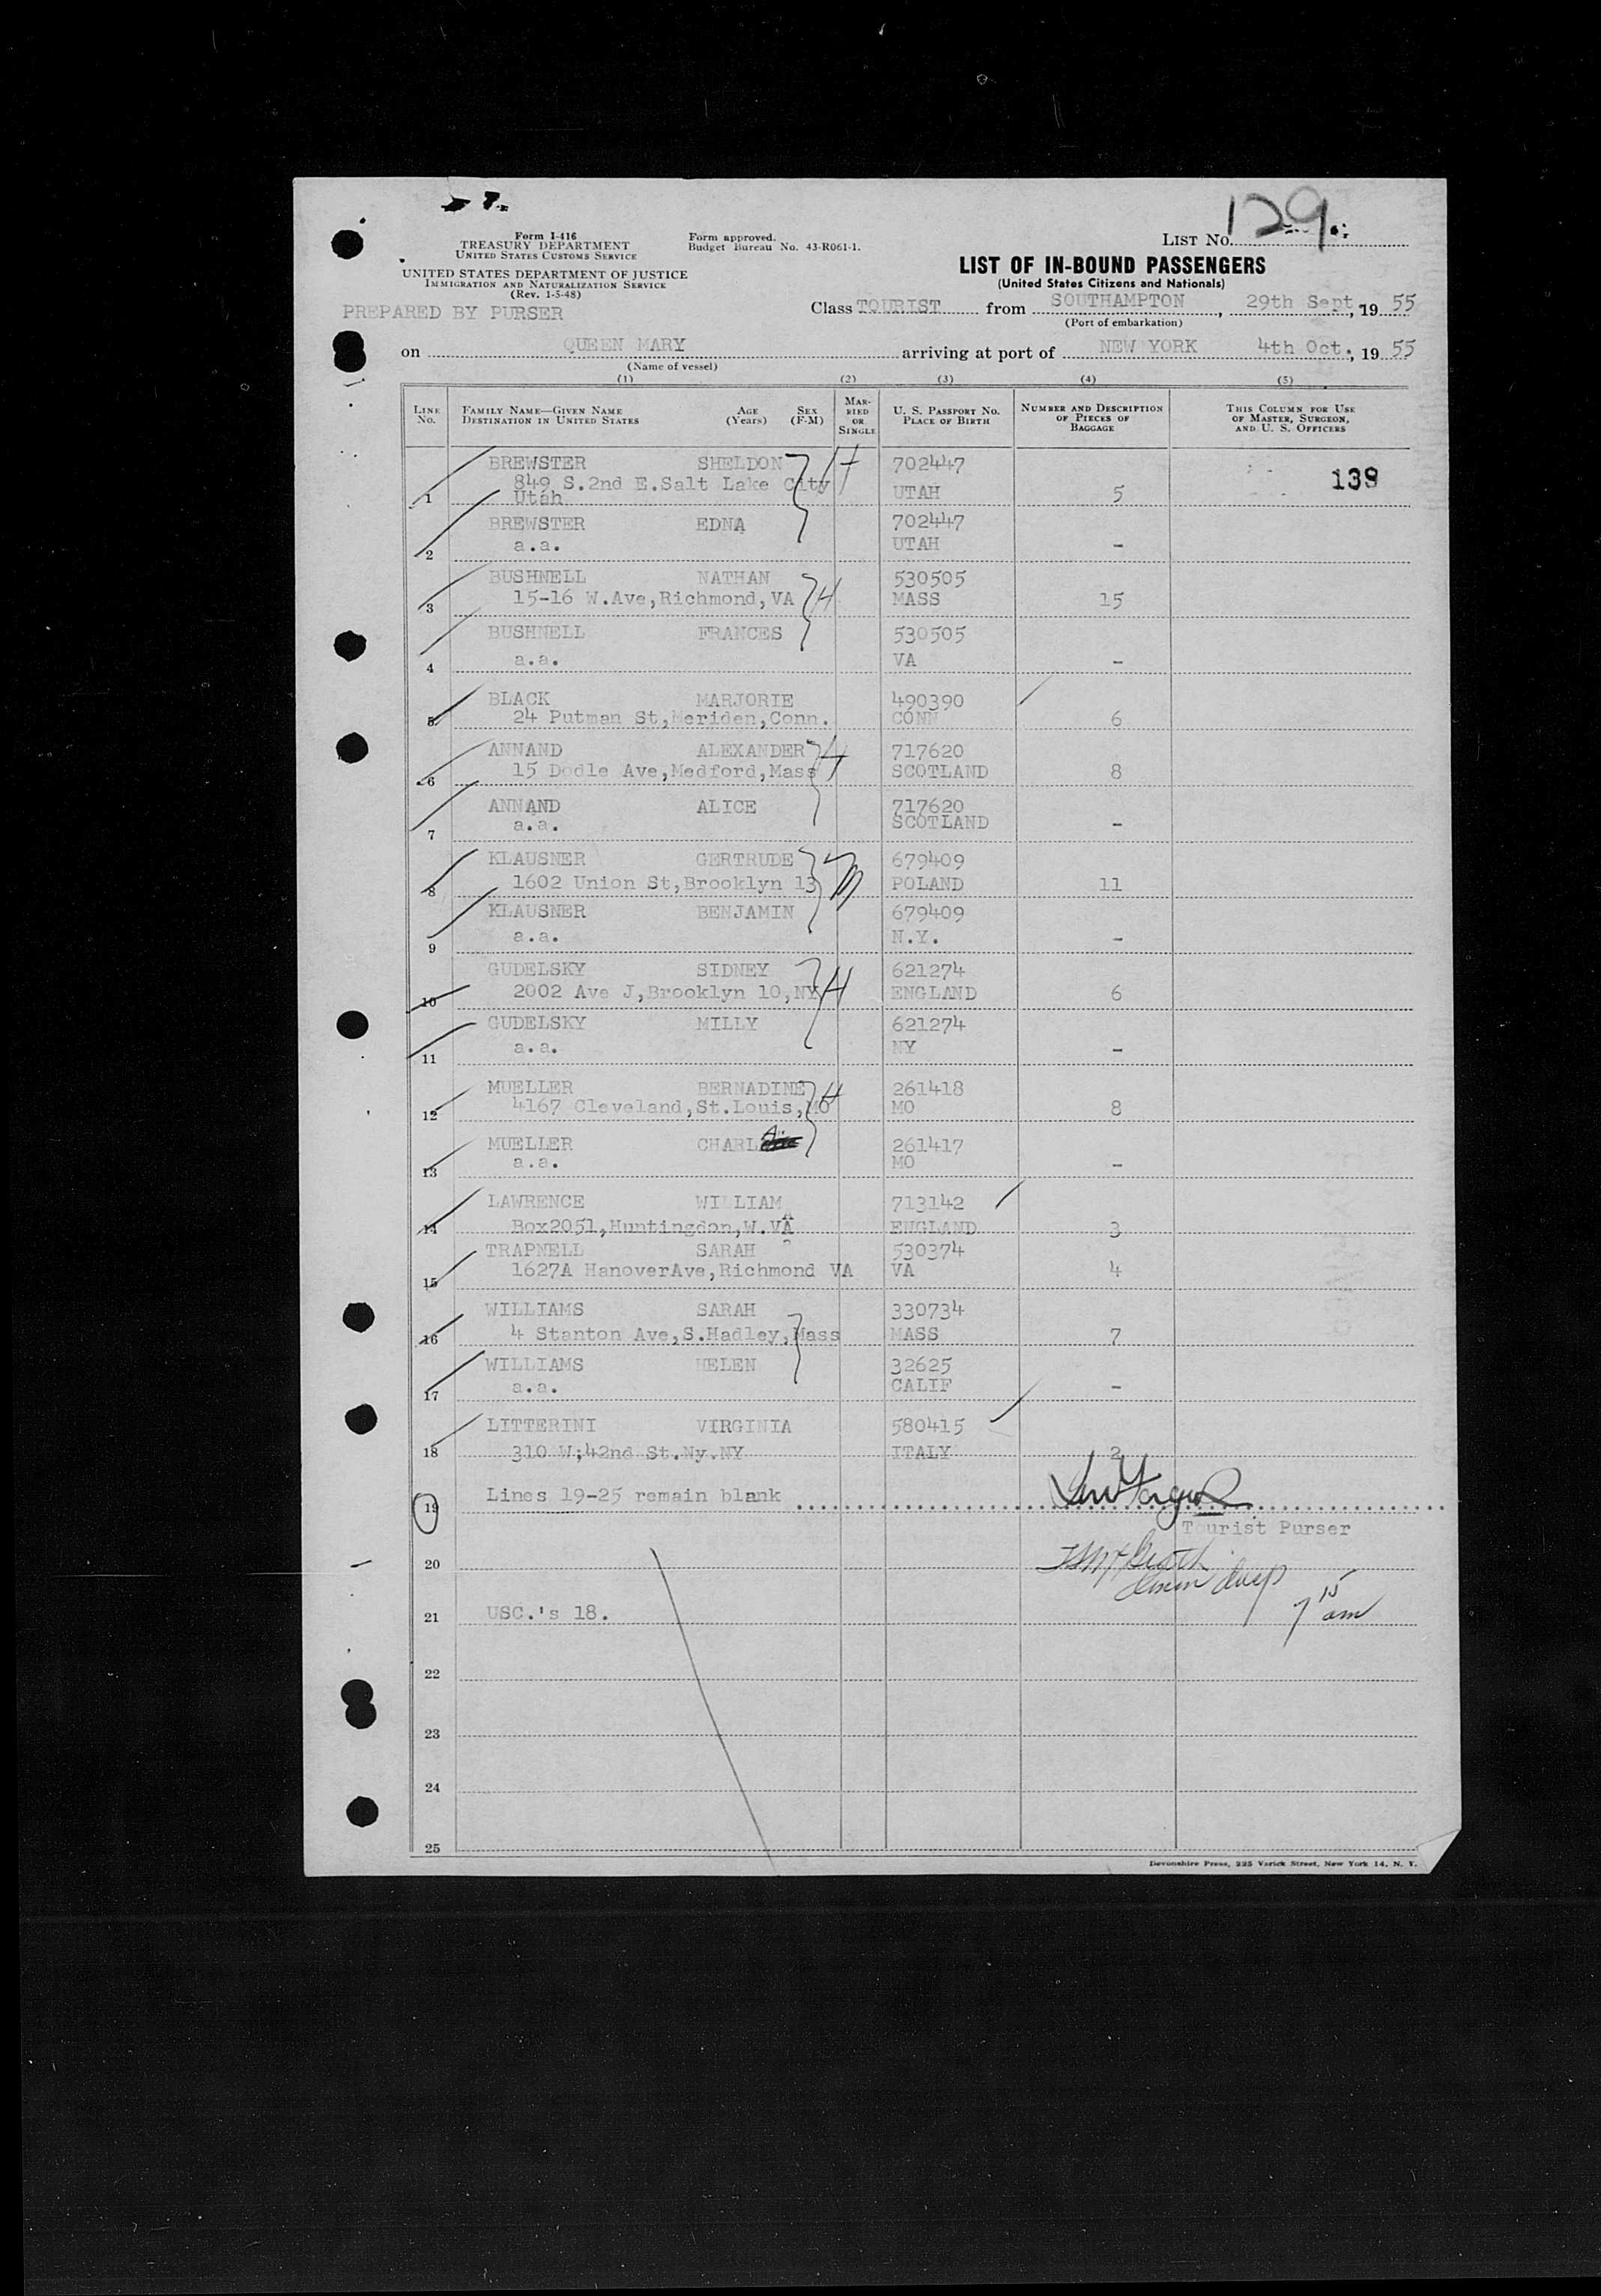 129.
Form I-416
TREASURY DEPARTMENT
UNITED STATES CUSTOMS SERVICE
UNITED STATES DEPARTMENT OF JUSTICE
IMMIGRATION AND NATURALIZATION SERVICE
(Rev. 1-5-48)
Form approved.
Budget Bureau No. 43-R061-1.
LIST No.
LIST OF IN-BOUND PASSENGERS
(United States Citizens and Nationals)
PREPARED BY PURSER
Class TOURIST from SOUTHAMPTON, 29th Sept, 19 55
(Port of embarkation)
on QUEEN MARY arriving at port of NEW YORK 4th Oct., 19 55
(Name of vessel)
(1) (2) (3) (4) (5)
LINE No. FAMILY NAME—GIVEN NAME DESTINATION IN UNITED STATES AGE (Years) SEX (F-M) MARRIED OR SINGLE U. S. PASSPORT No. PLACE OF BIRTH NUMBER AND DESCRIPTION OF PIECES OF BAGGAGE THIS COLUMN FOR USE OF MASTER, SURGEON, AND U. S. OFFICERS
BREWSTER SHELDON 702447
849 S.2nd E.Salt Lake City 139
1 Utah UTAH 5
BREWSTER EDNA 702447
2 a.a. UTAH -
BUSHNELL NATHAN 530505
3 15-16 W.Ave,Richmond,VA MASS 15
BUSHNELL FRANCES 530505
4 a.a. VA -
BLACK MARJORIE 490390
5 24 Putman St,Meriden,Conn. CONN 6
ANNAND ALEXANDER 717620
6 15 Dodle Ave,Medford,Mass SCOTLAND 8
ANNAND ALICE 717620
7 a.a. SCOTLAND -
KLAUSNER GERTRUDE 679409
8 1602 Union St,Brooklyn 13 POLAND 11
KLAUSNER BENJAMIN 679409
9 a.a. N.Y. -
GUDELSKY SIDNEY 621274
10 2002 Ave J,Brooklyn 10,NY ENGLAND 6
GUDELSKY MILLY 621274
11 a.a. NY -
MUELLER BERNADINE 261418
12 4167 Cleveland,St.Louis,MO MO 8
MUELLER CHARL 261417
13 a.a. MO -
LAWRENCE WILLIAM 713142
14 Box2051,Huntingdon,W.VA ENGLAND 3
TRAPNELL SARAH 530374
15 1627A HanoverAve,Richmond VA VA 4
WILLIAMS SARAH 330734
16 4 Stanton Ave,S.Hadley,Mass MASS 7
WILLIAMS HELEN 32625
17 a.a. CALIF -
LITTERINI VIRGINIA 580415
18 310 W;42nd St.Ny.NY ITALY 2
19 Lines 19-25 remain blank
Tourist Purser
20
21 USC.'s 18.
7 15 am
22
23
24
25
Devonshire Press, 225 Varick Street, New York 14, N. Y.